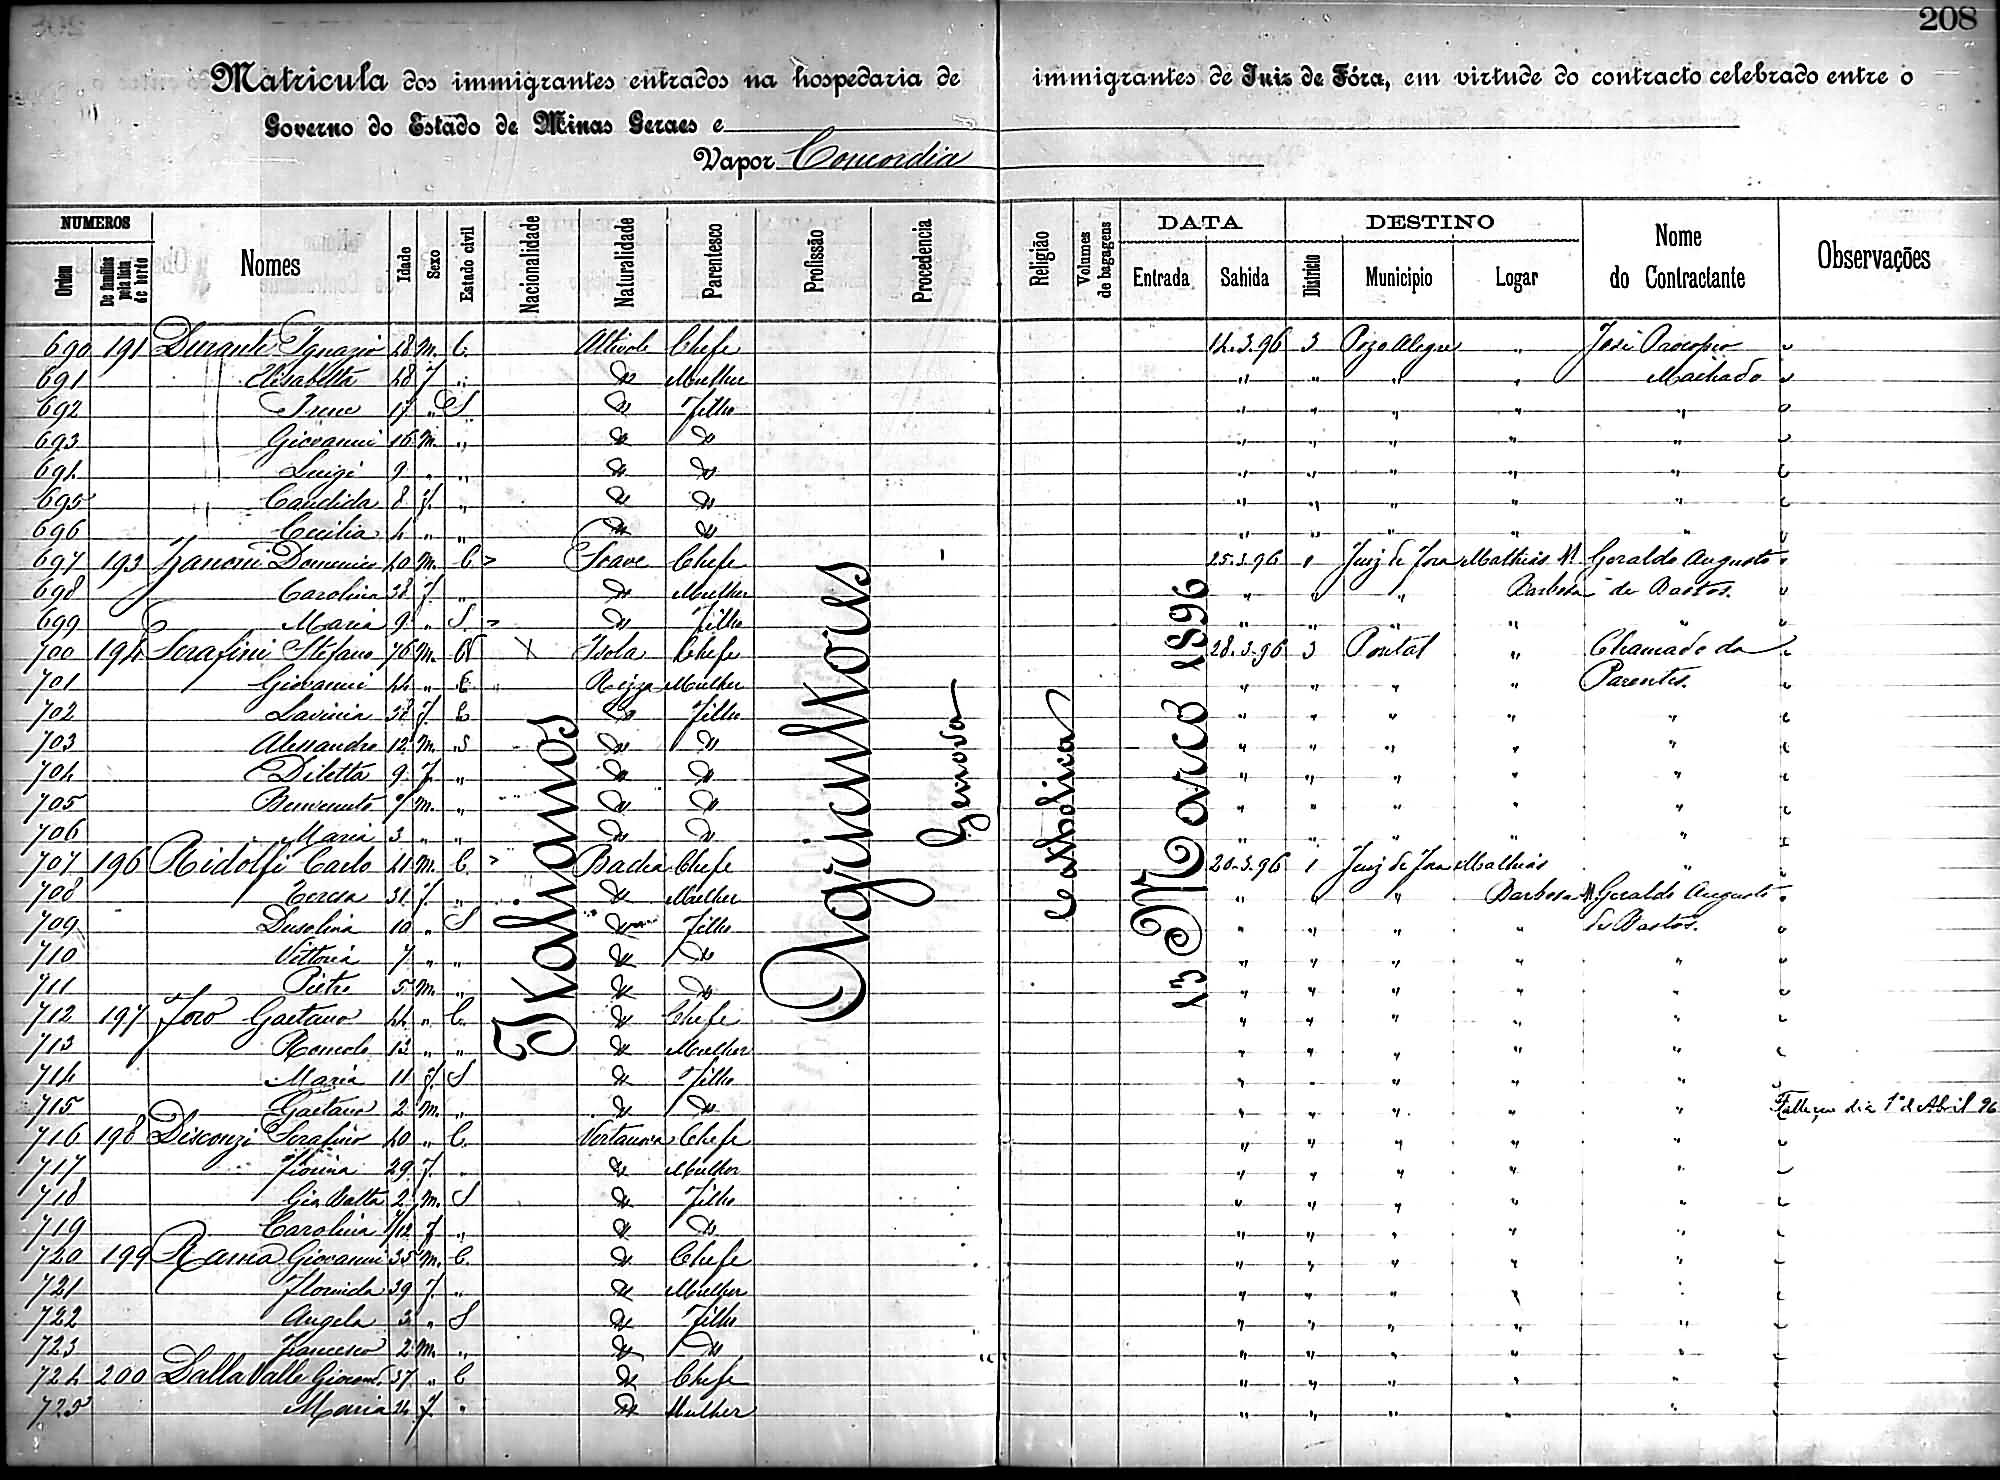 208
Matricula dos immigrantes entrados na hospedaria de immigrantes de Juiz de Fóra, em virtude do contracto celebrado entre o
Governo do Estado de Minas Geraes e
Vapor Concordia
NUMEROS DATA DESTINO
Ordem De familias pela lista de bordo Nomes Idade Sexo Estado civil Nacionalidade Naturalidade Parentesco Profissão Procedencia Religião Volumes de bagagens Entrada Sahida Districto Municipio Logar Nome do Contractante Observações
Italianos
Agricultores
Genova
Catholica
13 Março 1896
690 191 Durante Ignazio 48 M. C. Altivole Chefe 14.3.96 3 Pozo Alegre " José Procopio "
691 Elisabetta 48 f " Do Mulher " " " " Machado "
692 Irene 17 " S Do Filho " " " " "
693 Giovanni 16 M. " Do Do " " " " "
694 Luigi 9 " " Do Do " " " " "
695 Candida 8 f. " Do Do " " " " "
696 Cecilia 4 " " Do Do " " " " "
697 193 Zanoni Domenico 40 M. C Soave Chefe 25.3.96 1 Juiz de Fora Mathias Geraldo Augusto
698 Carolina 38 f. " Do Mulher " " " Barbosa de Bastos.
699 Maria 9 " S. Do Filho " " " " "
700 194 Serafini Stefano 76 M. X Isola Chefe 28.3.96 3 Pontal " Chamado da
701 Giovanni 44 " C " Rizza Mulher " " " " Parentes.
702 Lavinia 38 f. C Do Filho " " " " "
703 Alessandro 12 M. S Do Do " " " " "
704 Diletta 9 f. " Do Do " " " " "
705 Benvenuto M. " Do Do " " " " "
706 Maria 3 " " Do Do " " " " "
707 196 Ridolfi Carlo 41 M. C. Badia Chefe 20.3.96 1 Juiz de Fora Mathias "
708 Teresa 31 f. " Do Mulher " " " Barbosa Geraldo Augusto
709 Dusolina 10 " S Do Filho " " " " de Bastos.
710 Vittoria 7 " " Do Do " " " " "
711 Pietro 5 M. " Do Do " " " " "
712 197 Foro Gaetano 44 " C. Do Chefe " " " " "
713 Romolo 13 " " Do Mulher " " " " "
714 Maria 11 f. S Do Filho " " " " "
715 Gaetano 2 M. " Do Do " " " " " Falleceu dia 1º de Abril 96
716 198 Disconzi Serafino 40 " C. Chefe " " " " "
717 Fiorina 29 f. " Do Mulher " " " " "
718 Gio Batta 2 M. S Do Filho " " " " "
719 Carolina f " Do Do " " " " "
720 199 Giovanni 35 M. C. Do Chefe " " " " "
721 Florinda 39 f. " Do Mulher " " " " "
722 Angela 3 " S Do Filho " " " " "
723 Francesco 2 M. " Do Do " " " " "
724 200 Dalla Valle Giovanni 37 " C Do Chefe " " " " "
725 Maria 24 f. " Do Mulher " " " " "